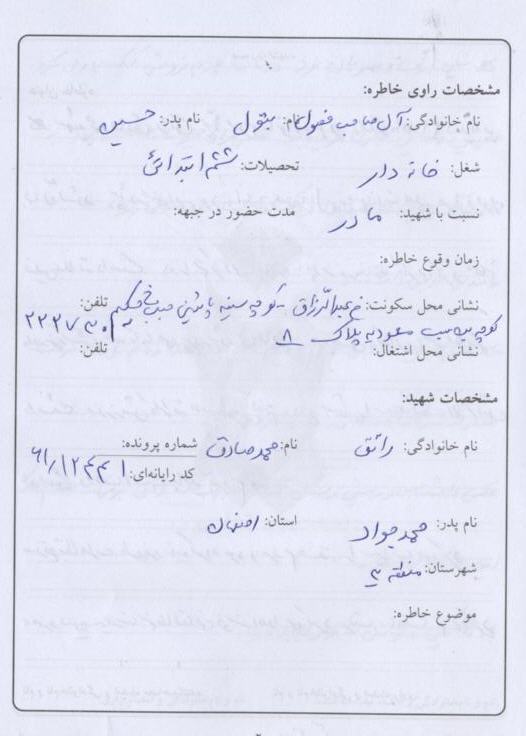 مشخصات راوی خاطره:
نام خانوادگی: آل صاحب فصول نام: بتول نام پدر: حسین
شغل: خانه دار تحصیلات: ششم ابتدائی
نسبت با شهید: مادر مدت حضور در جبهه:
زمان وقوع خاطره:
نشانی محل سکونت: خ عبدالرزاق کوچه سینه پائینی تلفن:
کوچه بن بست مسعودیه پلاک ۸
نشانی محل اشتغال: تلفن:
مشخصات شهید:
نام خانوادگی: رائق نام: محمدصادق شماره پرونده:
کد رایانه‌ای:
نام پدر: محمدجواد استان: اصفهان
شهرستان: منطقه ۳
موضوع خاطره: